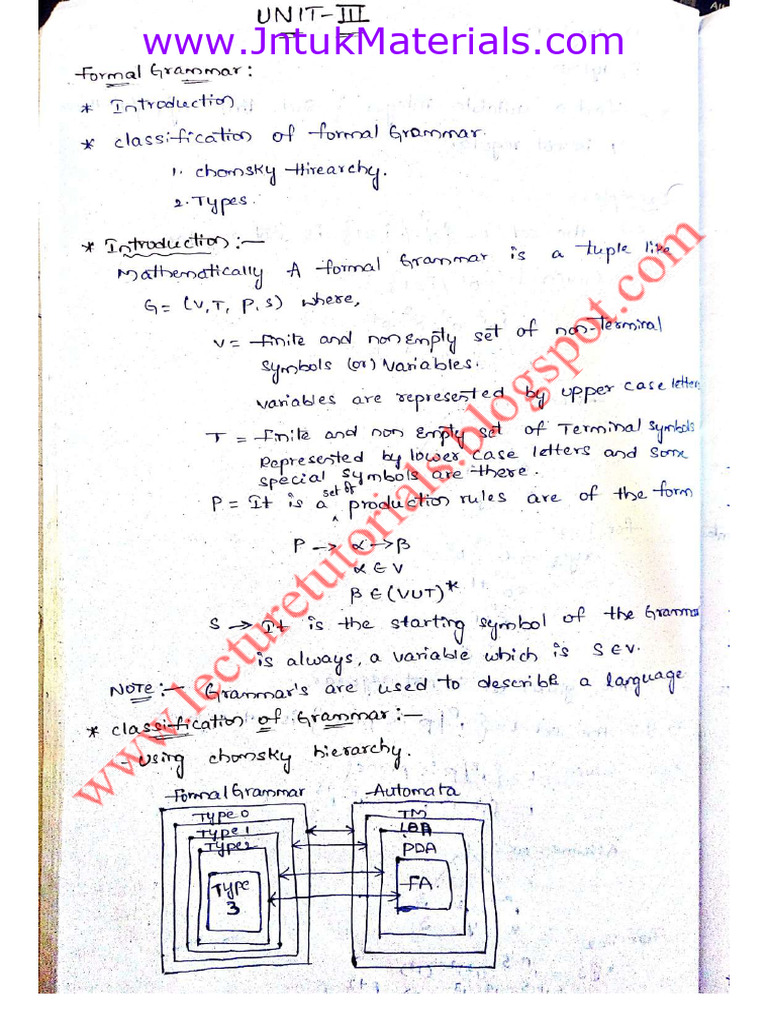 UNIT-III
www.JntukMaterials.com
Formal Grammar:
* Introduction
* classification of formal Grammar.
1. chomsky Hirearchy.
2. Types.
* Introduction:-
Mathematically A formal Grammar is a tuple like
G = (V, T, P, S) where,
V = finite and non empty set of non-Terminal
symbols (or) variables.
variables are represented by upper case letters
T = finite and non Empty set of Terminal symbols
Represented by lower case letters and some
special symbols are there.
P = It is a set of production rules are of the form
P → α → β
α ∈ V
β ∈ (VUT)*
S → It is the starting symbol of the Gramma
is always, a variable which is S ∈ V.
NOTE:- Grammar's are used to describe a language
* classification of Grammar:-
- using chomsky hierarchy.
Formal Grammar
Automata
Type 0
TM
Type 1
LBA
Type 2
PDA
Type
3
FA.
www.lecturetutorials.blogspot.com